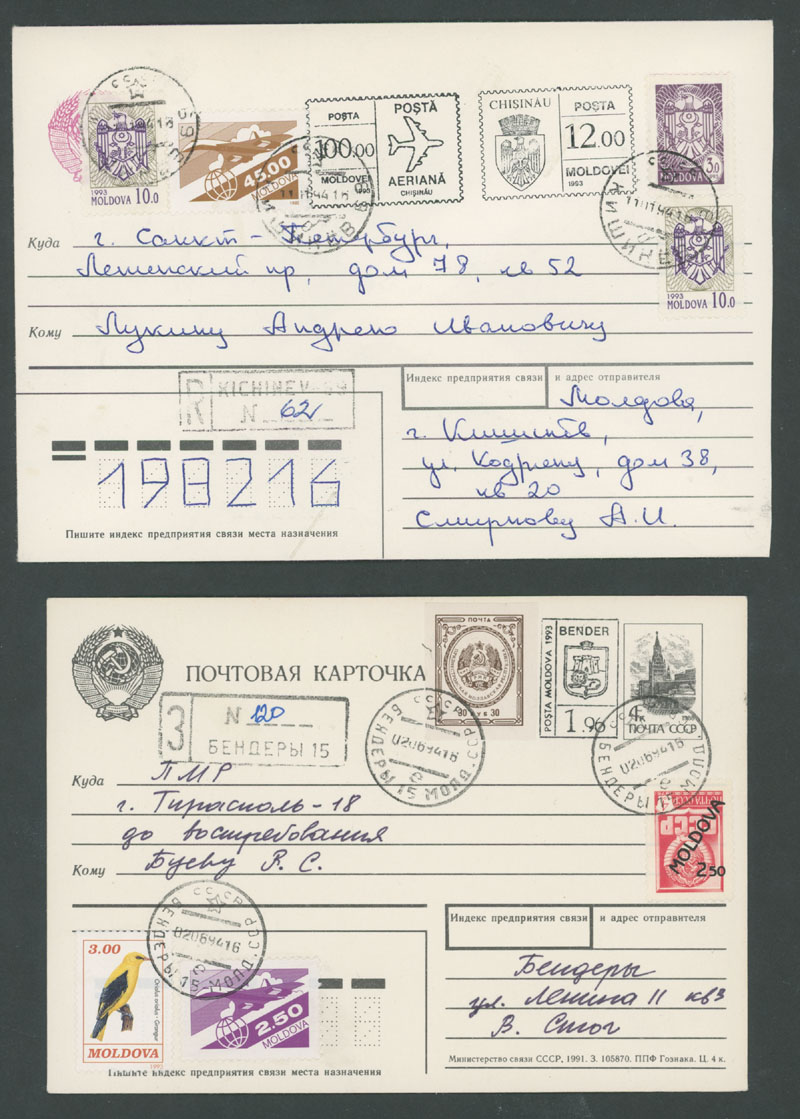 СССР
1993
MOLDOVA 10.0
45.00
MOLDOVA
POȘTA
100.00
MOLDOVEI
1993
POȘTĂ
AERIANĂ
CHIȘINĂU
CHIȘINĂU
POȘTA
12.00
MOLDOVEI
1993
3.0
MOLDOVA
1993
MOLDOVA 10.0
Куда г. Санкт-Петербург,
пр, дом 78, кв 52
Кому Лукину Андрею Ивановичу
R KICHINEV-99
N 62
Индекс предприятия связи и адрес отправителя
Молдова,
г. Кишинёв,
ул. Кодряну, дом 38,
кв 20
Смирнову А.И.
198216
Пишите индекс предприятия связи места назначения
ПОЧТОВАЯ КАРТОЧКА
ПОЧТА
30 РУБ 30
POSTA MOLDOVA 1993
BENDER
1.96
4к
ПОЧТА СССР
З N 120
БЕНДЕРЫ 15
СССР
02069416
БЕНДЕРЫ 15 МОЛД.ССР
02069416
БЕНДЕРЫ
Куда ПМР
г. Тирасполь-18
до востребования
Кому Буеву
MOLDOVA
2 50
СССР
02069416
БЕНДЕРЫ 15 МОЛД.ССР
Индекс предприятия связи и адрес отправителя
3.00
Oriolus oriolus - Grangur
MOLDOVA
1993
2.50
MOLDOVA
Бендеры
ул. Ленина 11 кв3
В. Стог
Министерство связи СССР, 1991. З. 105870. ППФ Гознака. Ц. 4 к.
Пишите индекс предприятия связи места назначения